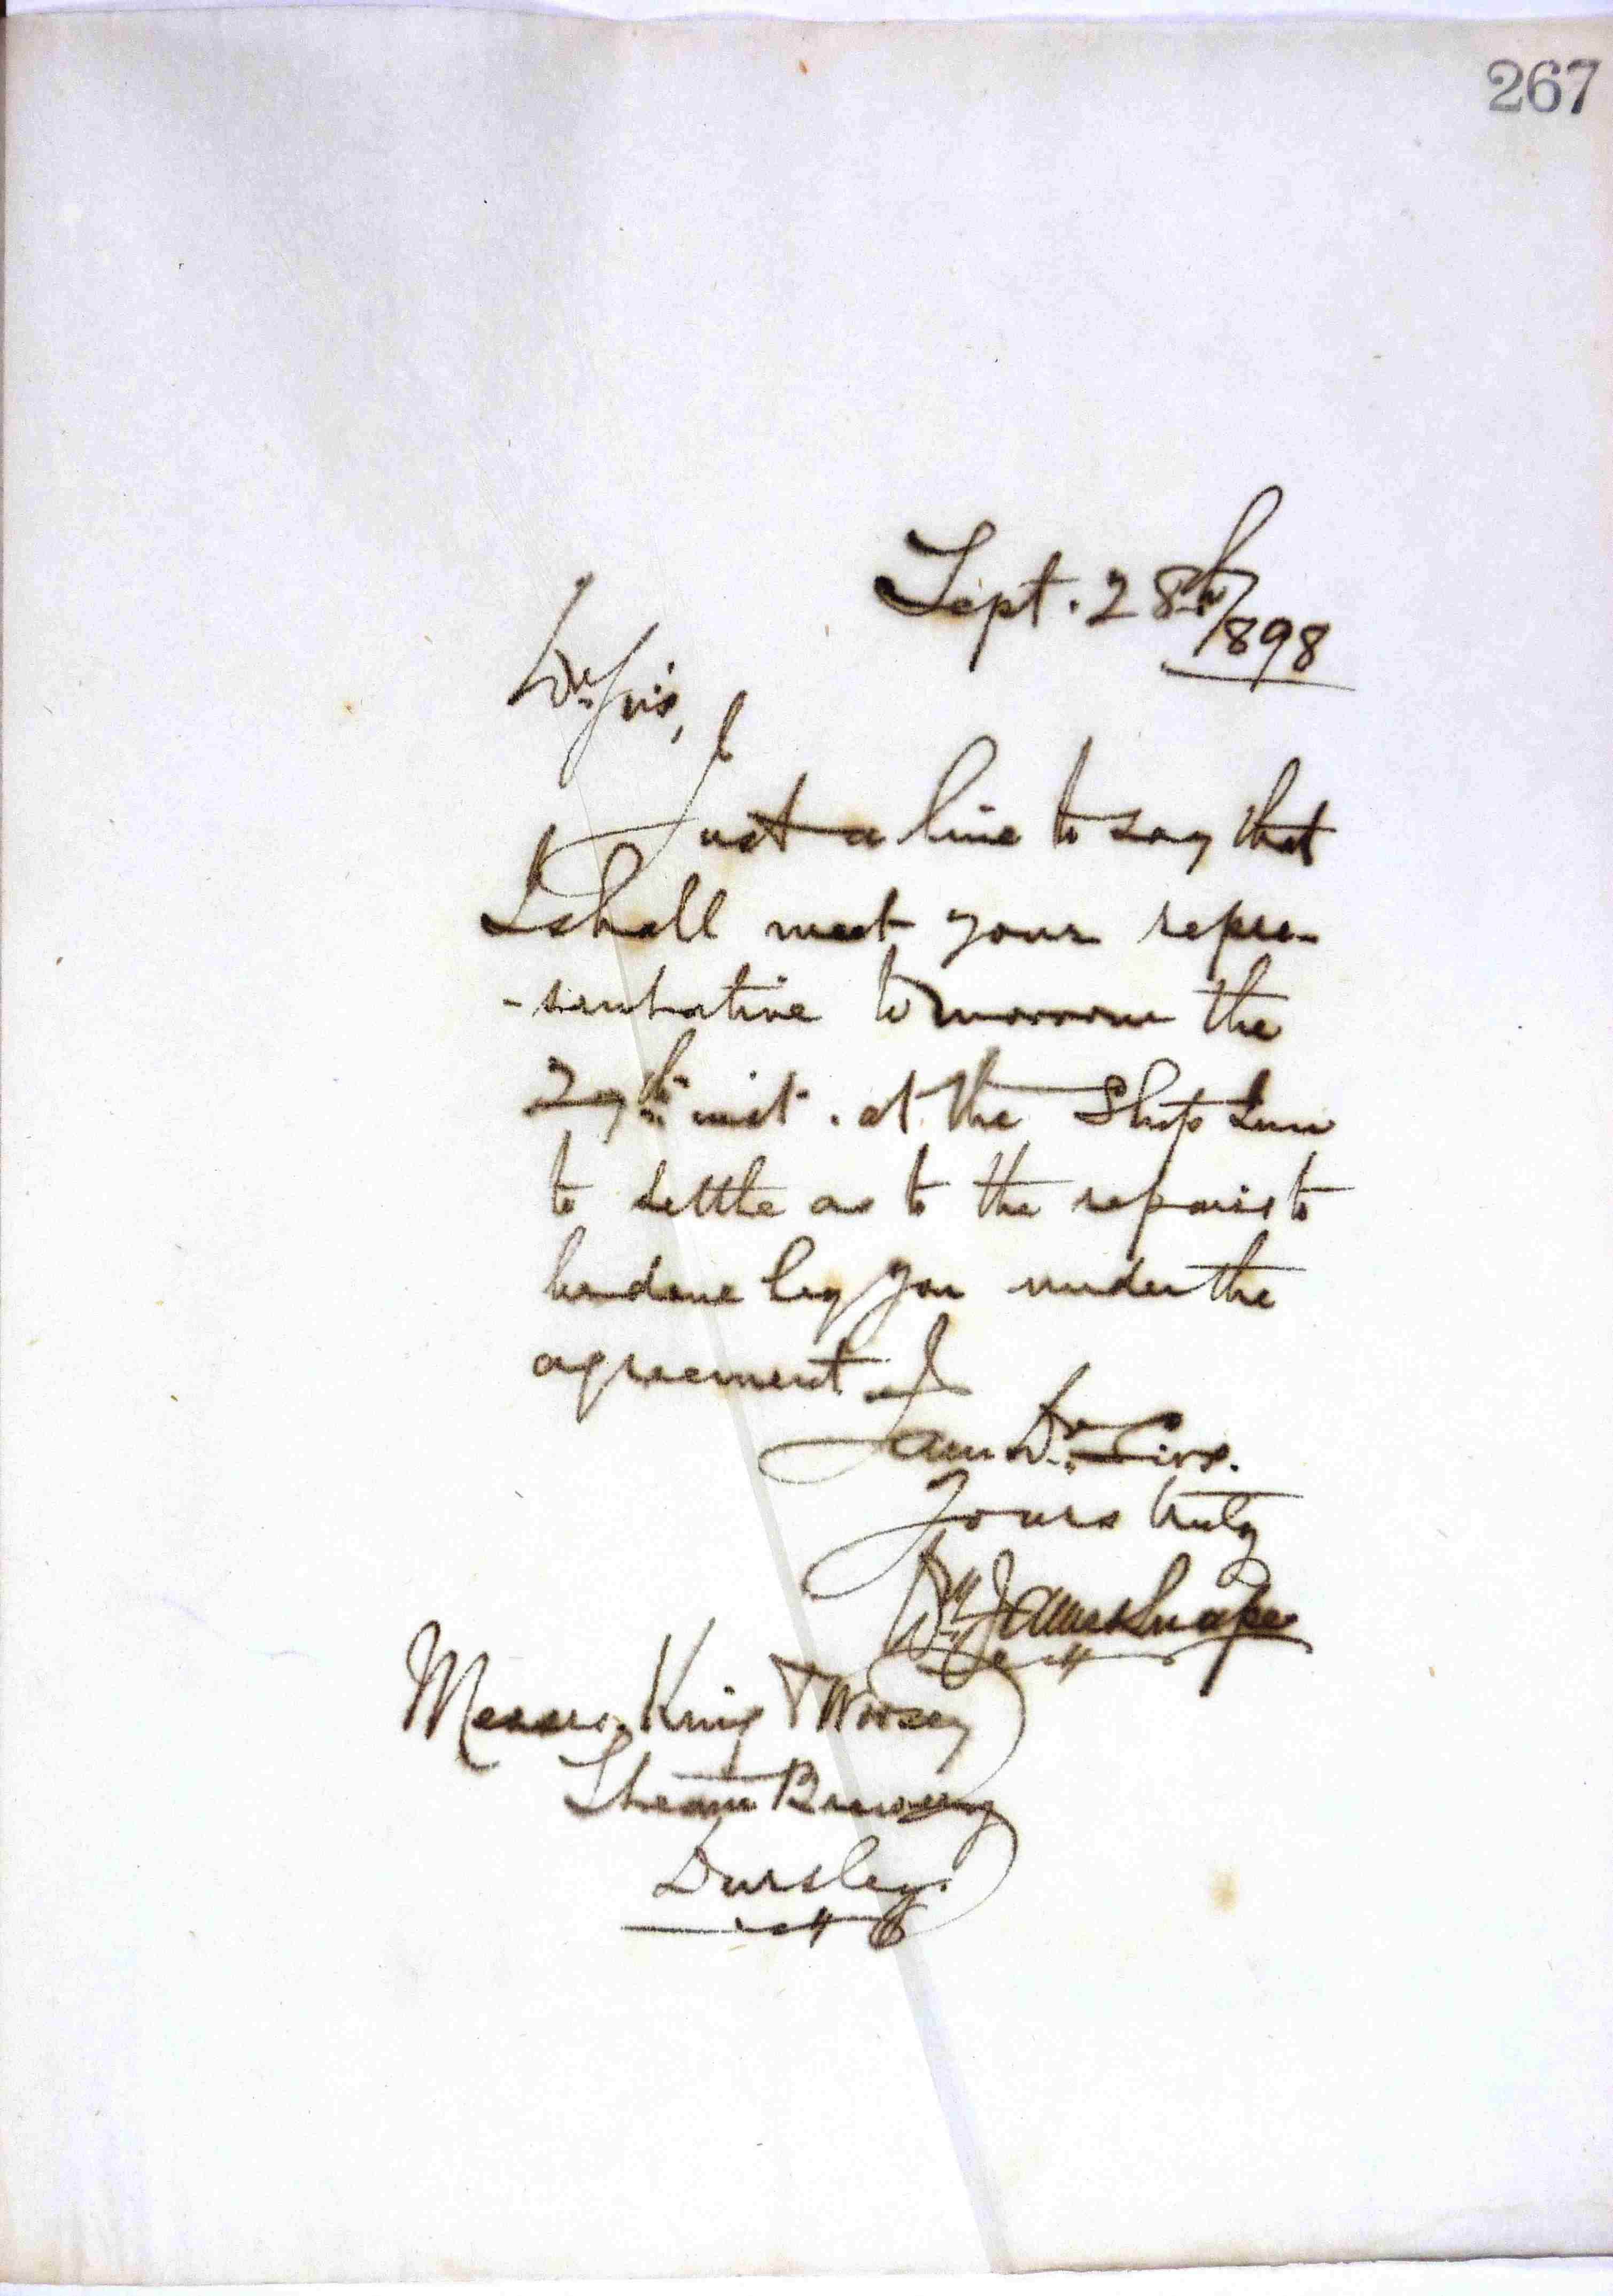 267
Sept. 28th/1898
Dr Sirs,
Just a line to say that
I shall meet your repre-
-sentative tomorrow the
29th inst. at the Ship Inn
to settle as to the repairs to
be done by you under the
agreement
I am Dr Sirs.
Yours truly
Wm James Snape
Messrs. King & Woosey
Steam Brewery
Dursley.